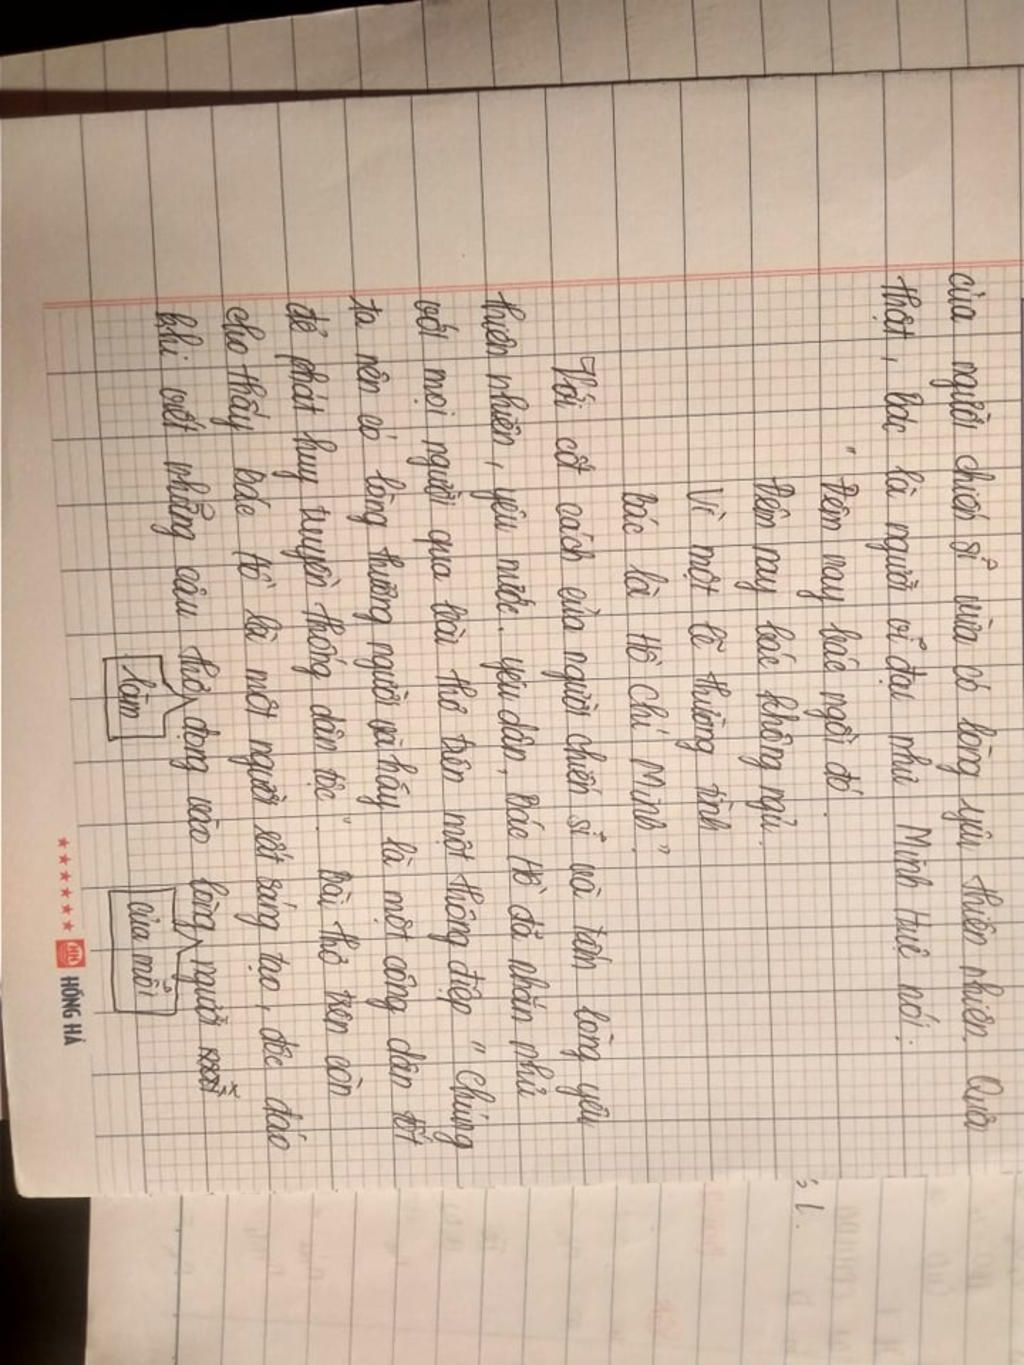 của người chiến sĩ vừa có lòng yêu thiên nhiên. Quả
thật, bác là người vĩ đại như Minh Huệ nói:
"Đêm nay bác ngồi đó.
Đêm nay bác không ngủ.
Vì một lẽ thường tình
Bác là Hồ Chí Minh".
Với cốt cách của người chiến sĩ và tấm lòng yêu
thiên nhiên, yêu nước. yêu dân, Bác Hồ đã nhắn nhủ
với mọi người qua bài thơ trên một thông điệp "Chúng
ta nên có lòng thương người và hãy là một công dân tốt
để phát huy truyền thống dân tộc". Bài thơ trên còn
cho thấy Bác Hồ là một người rất sáng tạo, độc đáo
khi viết những câu thơ động vào lòng người
làm
của mỗi
HỒNG HÀ